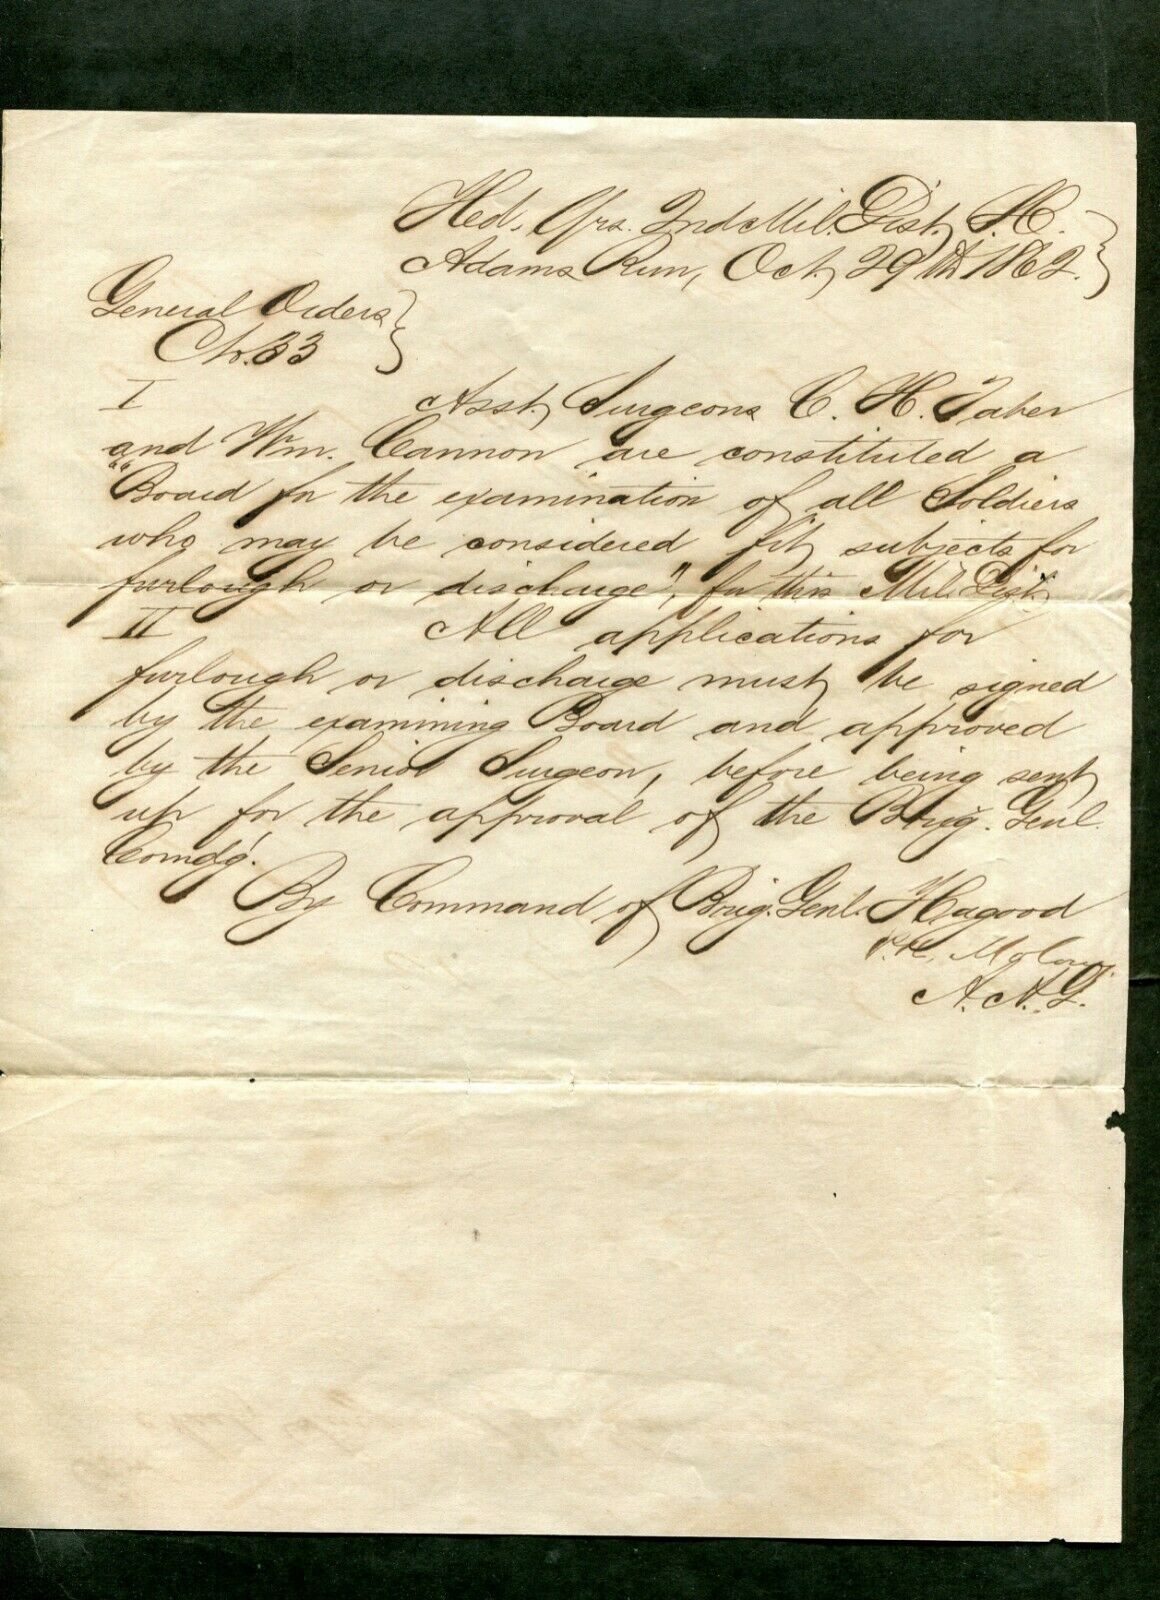 Hed. Qrs. 2nd Mil. Dist. S.C.
Adams Run, Oct. 29th 1862.
General Orders
No. 33
I Asst. Surgeons C. H. Taber
and Wm. Cannon are constituted a
"Board for the examination of all Soldiers
who may be considered fit subjects for
furlough or discharge", for this Mil. Dist.
II All applications for
furlough or discharge must be signed
by the examining Board and approved
by the Senior Surgeon, before being sent
up for the approval of the Brig. Genl.
Comdg.
By Command of Brig. Genl. Hagood
P.K. Molony
A.A.G.